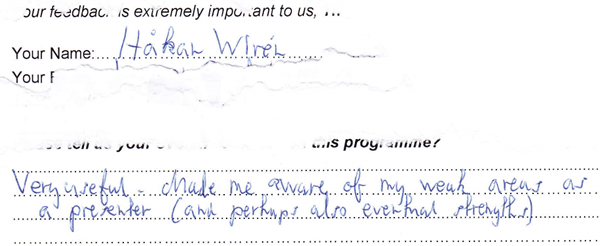 our feedback is extremely important to us,
Your Name: Håkan Wirén
Your
tell us your this programme?
Very useful - Made me aware of my weak areas as
a presenter (and perhaps also eventual strengths)